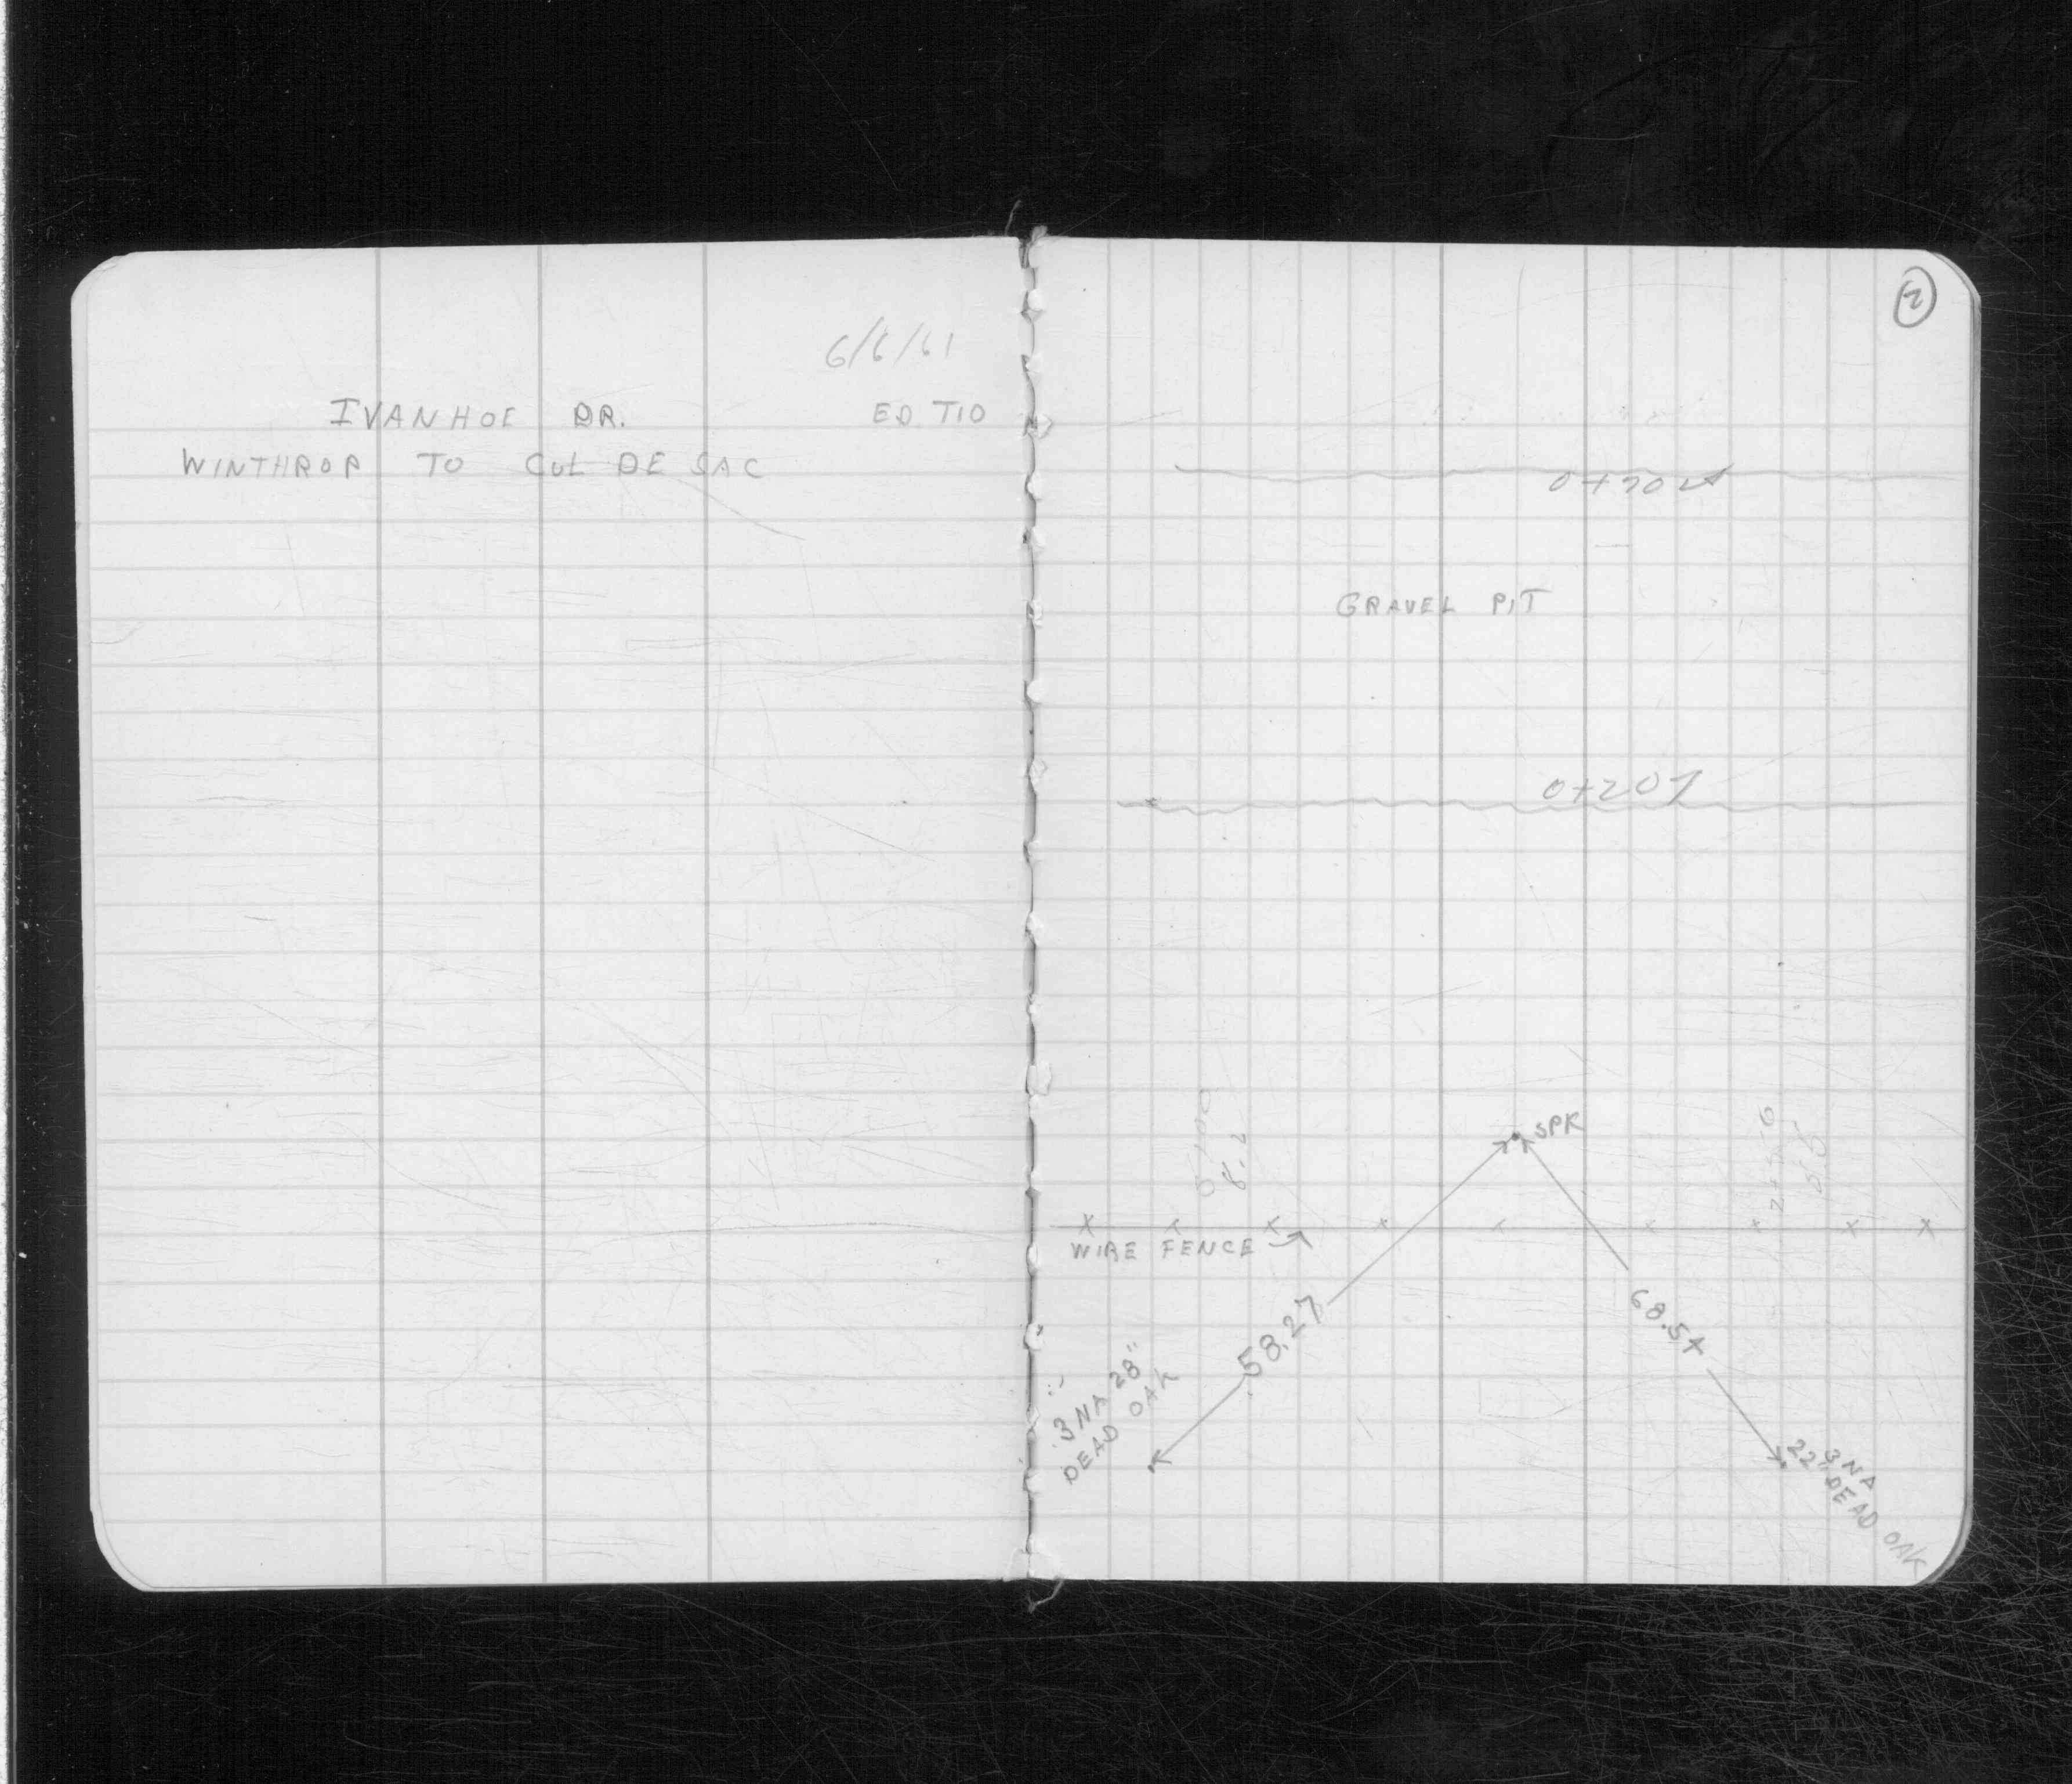 6/6/61
IVANHOE DR. ED TIO
WINTHROP TO CUL DE SAC
2
0+70
GRAVEL PIT
0+20
SPK
0+00
8.2
WIRE FENCE
58.27
68.54
3 NA 28"
DEAD OAK
3 NA
22" DEAD OAK